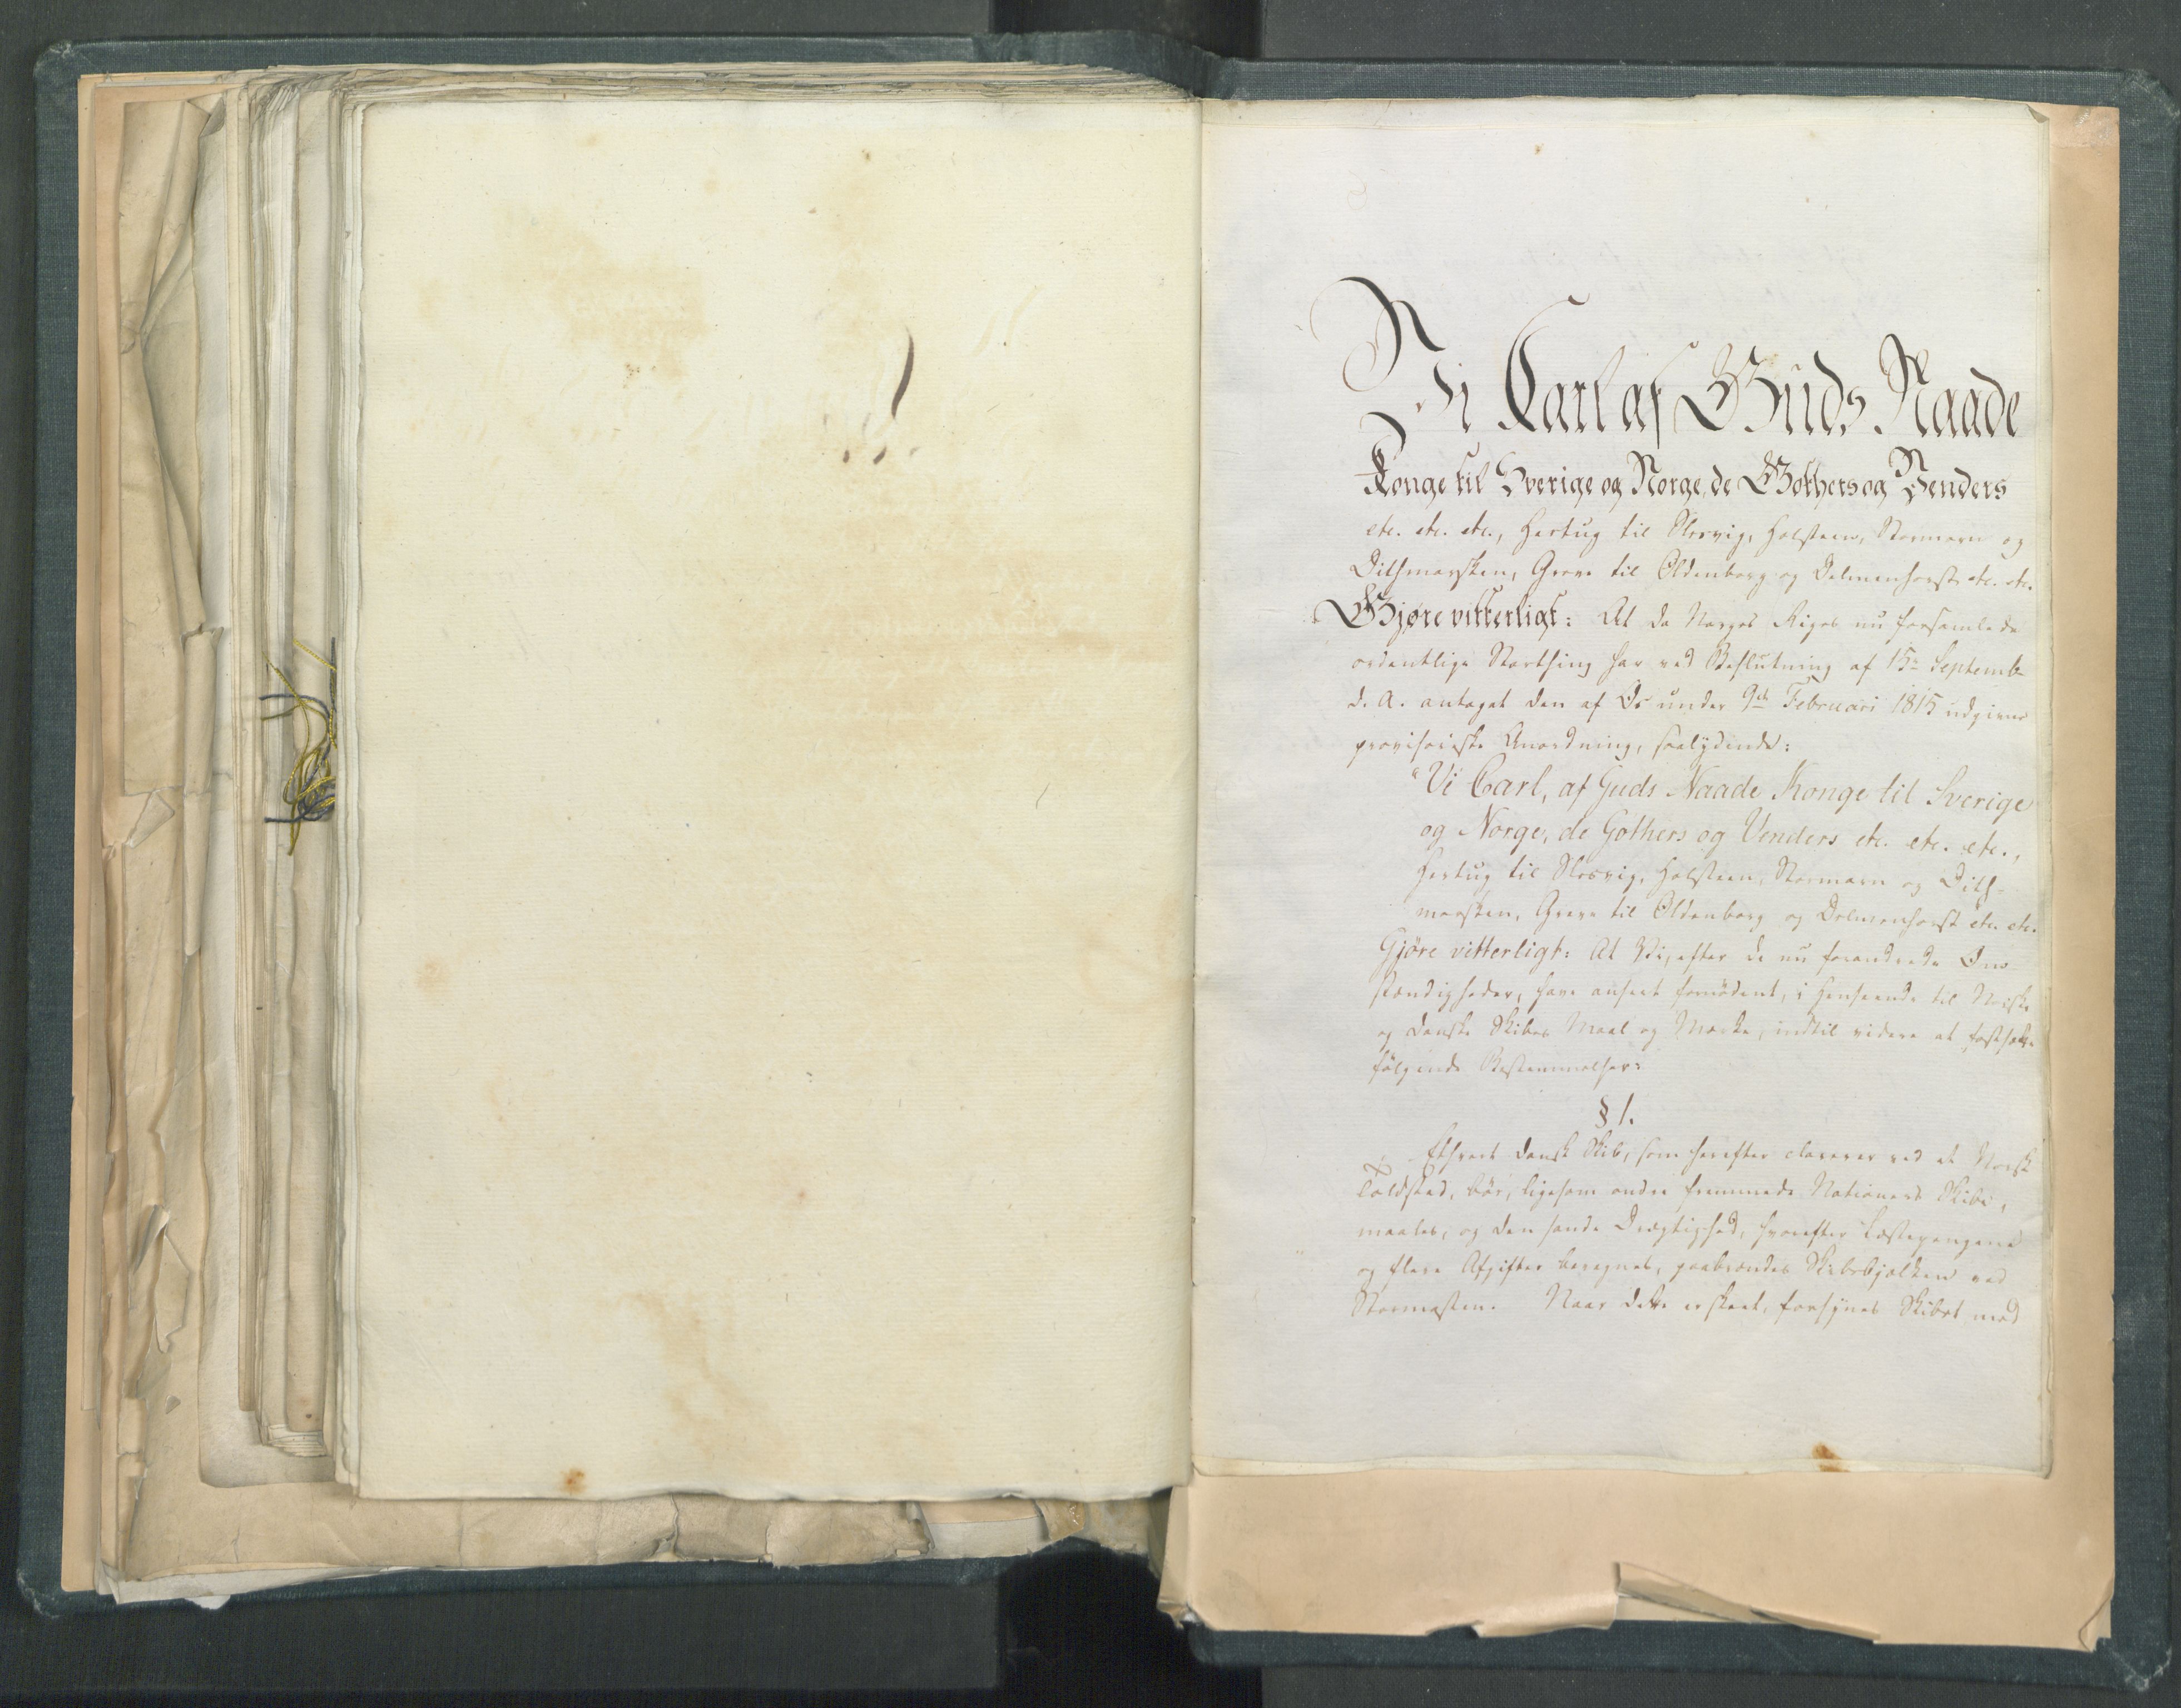 Vi Carl af Guds Naade
Konge til Sverige og Norge, de Gothers og Venders
etc. etc. etc., Hertug til Slesvig, Holsteen, Stormarn og
Dithmarsken, Greve til Oldenborg og Delmenhorst etc. etc.
Gjøre vitterligt: At da Norges Riges nu forsamlede
ordentlige Storthing har ved Beslutning af 15de Septemb
d. A. antaget den af Os under 9de Februari 1815 udgivne
provisoriske Anordning, saalydende:
"Vi Carl, af Guds Naade Konge til Sverige
og Norge, de Gothers og Venders etc. etc. etc.,
Hertug til Slesvig, Holsteen, Stormarn og Dith-
marsken, Greve til Oldenborg og Delmenhorst etc. etc.
Gjöre vitterligt: At Vi, efter de nu forandrede Om-
stændigheder, have anseet fornödent, i Henseende til Norske
og danske Skibes Maal og Mærke, indtil videre at fastsætte
fölgende Bestemmelser:
§ 1.
Ethvert dansk Skib, som herefter clarerer ved et Norsk
Toldsted, bör, ligesom andre fremmede Nationers Skibe,
maales, og den sande Drægtighed, hvorefter Læstepengene
og flere Afgifter beregnes, paabrændes Skibsbjælken ved
Stormasten. Naar dette er skeet, forsynes Skibet med